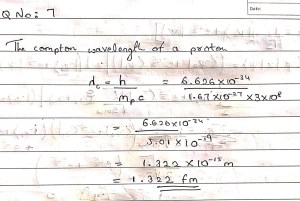 Q No: 7
Date:
The compton wavelength of a proton
λc = h / mp c = 6.626×10⁻³⁴ / 1.67×10⁻²⁷ ×3×10⁸
= 6.626×10⁻³⁴ / 5.01 × 10⁻¹⁹
= 1.322 × 10⁻¹⁵ m
= 1.322 fm